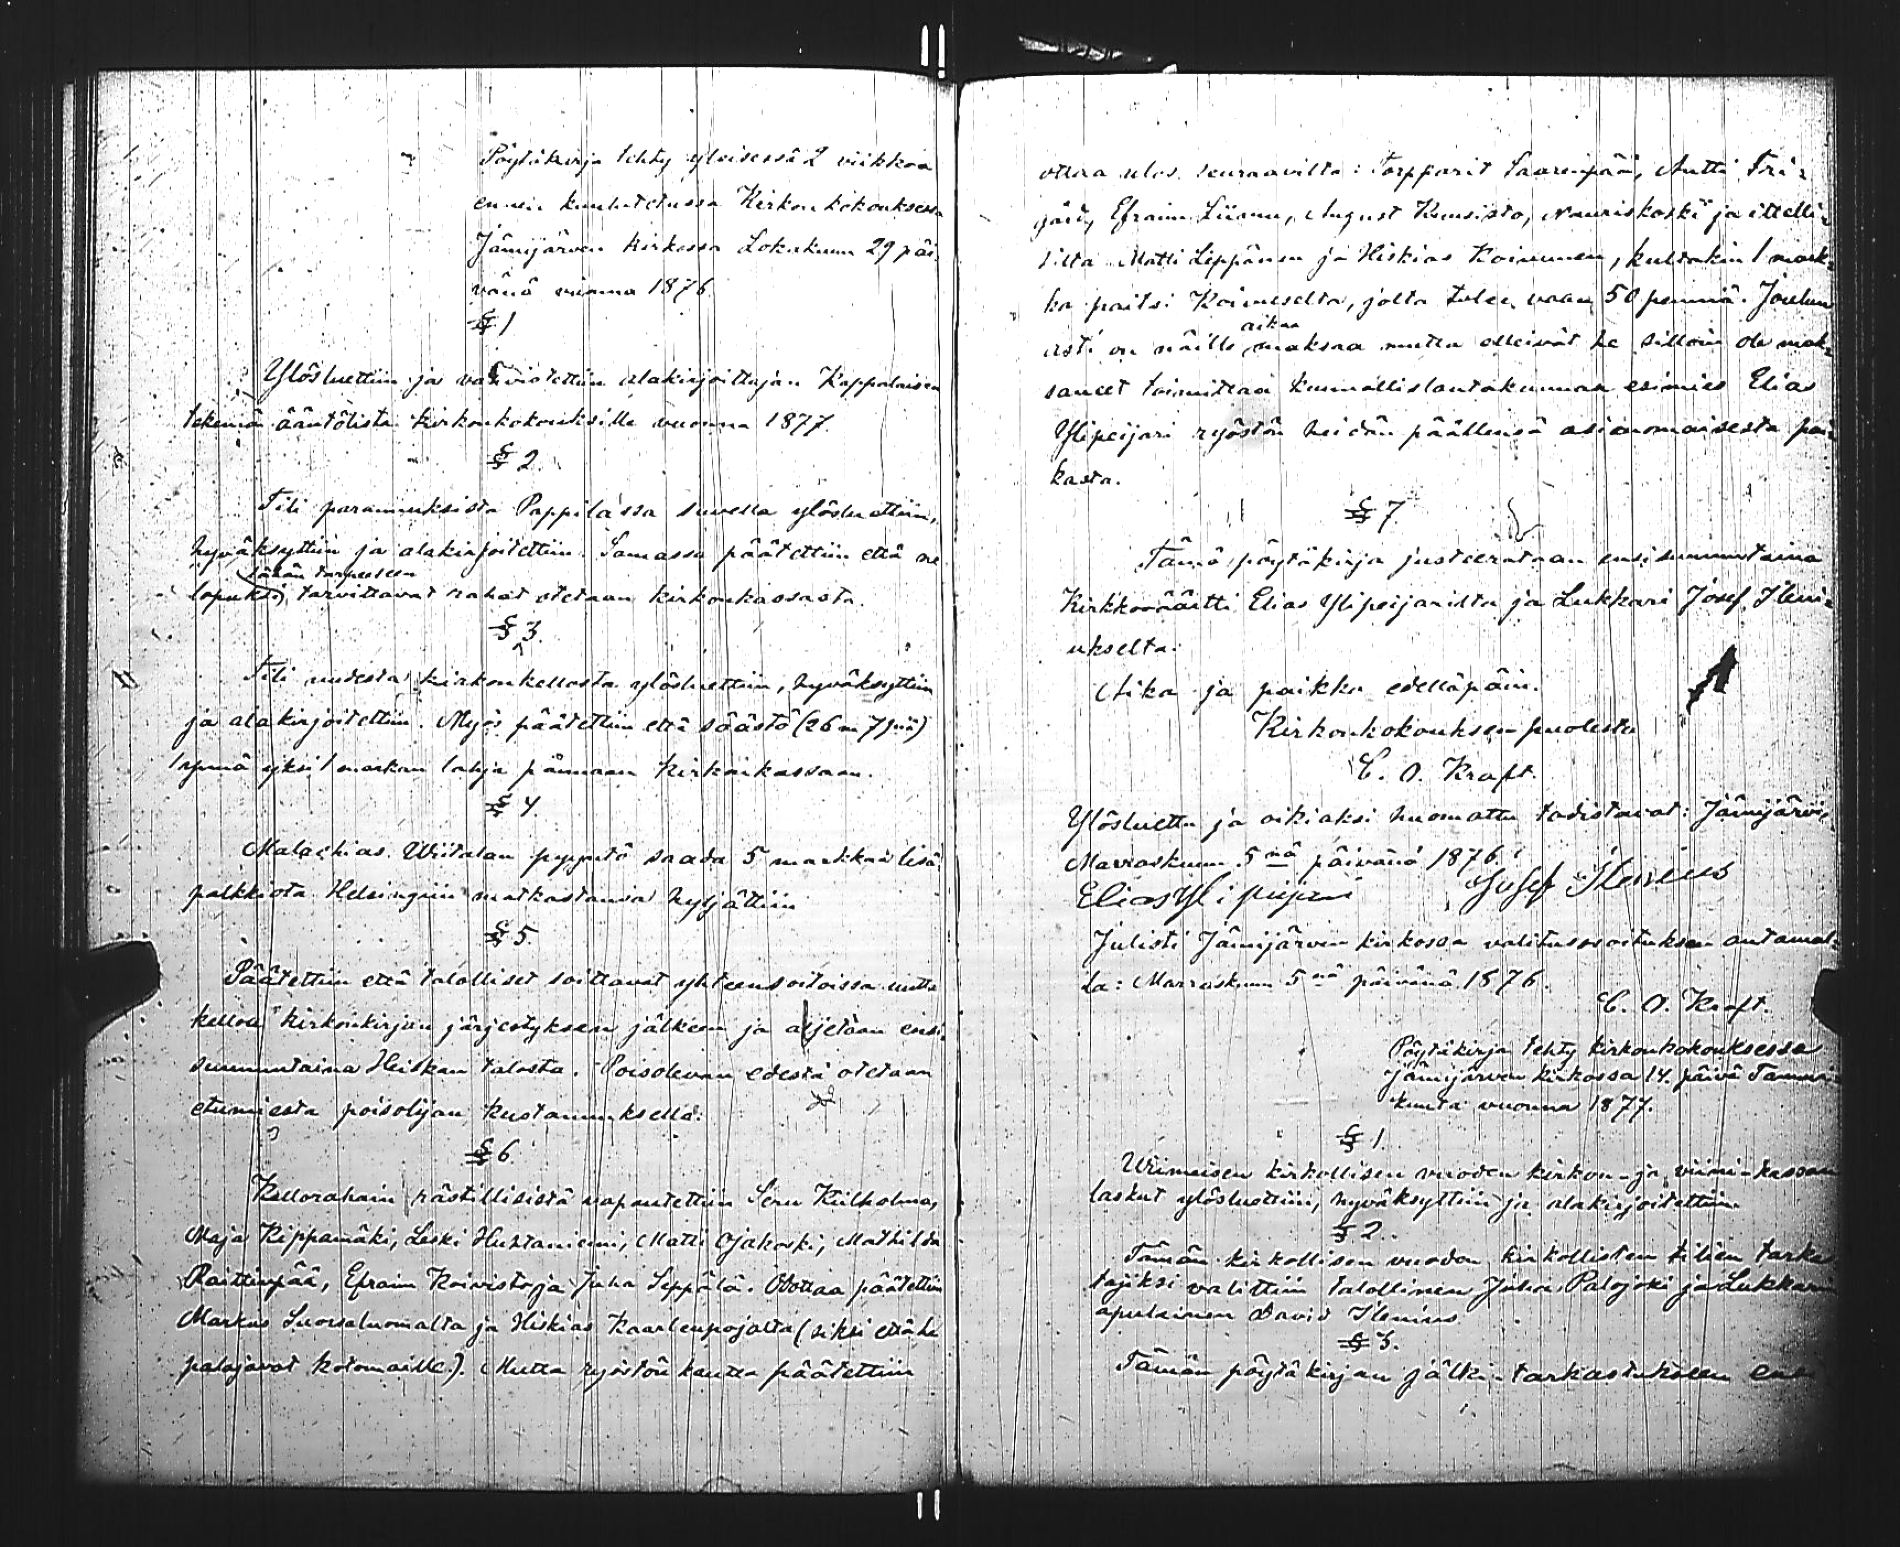 Pöytäkirja tehty yleisessä 2 viikkoa
ennen kuulutetussa Kirkonkokouksessa
Jämijärven kirkossa Lokakuun 29 päi-
vänä vuonna 1876.
§ 1
Ylösluettiin ja vahvistettiin alakirjoittajan Kappalaisen
tekemä ääntölista kirkonkokouksille vuonna 1877.
§ 2.
Tili parannuksista Pappilassa suvella ylösluettiin,
hyväksyttiin ja alakirjoitettiin. Samassa päätettiin että ne
tähän tarpeeseen
lopuksi tarvittavat rahat otetaan kirkonkassasta.
§ 3.
Tili uudesta kirkonkellosta ylösluettiin, hyväksyttiin
ja alakirjoitettiin. Myös päätettiin että säästö (26 m 7 )
ynnä yksi 1 markan lahja pannaan kirkonkassaan.
§ 4.
Malachias Wiitalan pyyntö saada 5 markkaa lisä
palkkiota Helsingiin matkastansa hyljättiin
§ 5.
Päätettiin että talolliset soittavat yhteensoitoissa uutta
kelloa kirkonkirjan järjestyksen jälkeen ja aljetaan ensi-
sunnuntaina Heiskan talosta. Poisolevan edestä otetaan
etumiesta poisolijan kustannuksella.
§ 6.
Kellorahain rästillisistä vapautettiin Seru Kiilholma,
Maja Kippamäki, Leski Huhtaniemi, Matti Ojakoski, Mathilda
Raittinpää, Efraim Koivisto ja Juha Seppälä. Odottaa päätettiin
Markus Suorsaluomalta ja Hiskias Kaarlenpojalta (siksi että he
palajavat kotomaille). Mutta ryöstön kautta päätettiin
ottaa ulos seuraavilta: Torpparit Saarenpää, Antti
Efraim Liiamu, August Kuusisto, Nauriskoski ja itselli-
silta Matti Leppänen ja Hiskias Koivunen, kultakin 1 mark-
ka paitsi Koivuselta, jolta tulee vaan 50 penniä. Joulun
aikaa
asti on näillä maksaa mutta elleivät he silloin ole mak-
saneet toimittaa kunnallislautakunnan esimies Elias
Ylipeijari ryöstön heidän päällensä asianomaisesta pai-
kasta.
§ 7.
Tämä pöytäkirja justeerataan ensi sunnuntaina
Kirkkoväärtti Elias Ylipeijarilta ja Lukkari Josef Ileni-
ukselta.
Aika ja paikka edelläpäin.
Kirkonkokouksen puolesta
C. O. Kraft.
Ylösluettu ja oikiaksi huomattu todistavat: Jämijärvi,
Marraskuun 5nä päivänä 1876.
Elias Ylipeijari Josef Ilenius
Julisti Jämijärven kirkossa valitusosoituksen antamal-
la: Marraskuun 5nä päivänä 1876.
C. O. Kraft.
Pöytäkirja tehty kirkonkokouksessa
Jämijärven kirkossa 14. päivä Tammi-
kuuta vuonna 1877.
§ 1.
Wiimeisen kirkollisen vuoden kirkon- ja viini-kassan
laskut ylösluettiin, hyväksyttiin ja alakirjoitettiin.
§ 2.
Tämän kirkollisen vuoden kirkollisten tilien tarkas
tajiksi valittiin talollinen Juha Palojoki ja Lukkarin
apulainen David Ilenius.
§ 3.
Tämän pöytäkirjan jälki-tarkastukseen